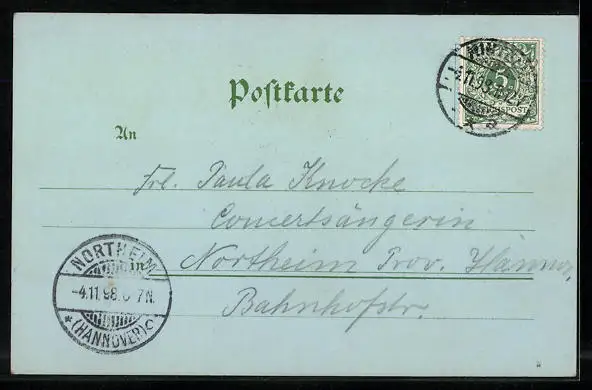 Postkarte
An
Frl. Paula Knocke
Concertsängerin
in Northeim Prov. Hannov.
Bahnhofstr.
NORTHEIM
-4.11.98. 6-7N.
*(HANNOVER)c
5
REICHSPOST